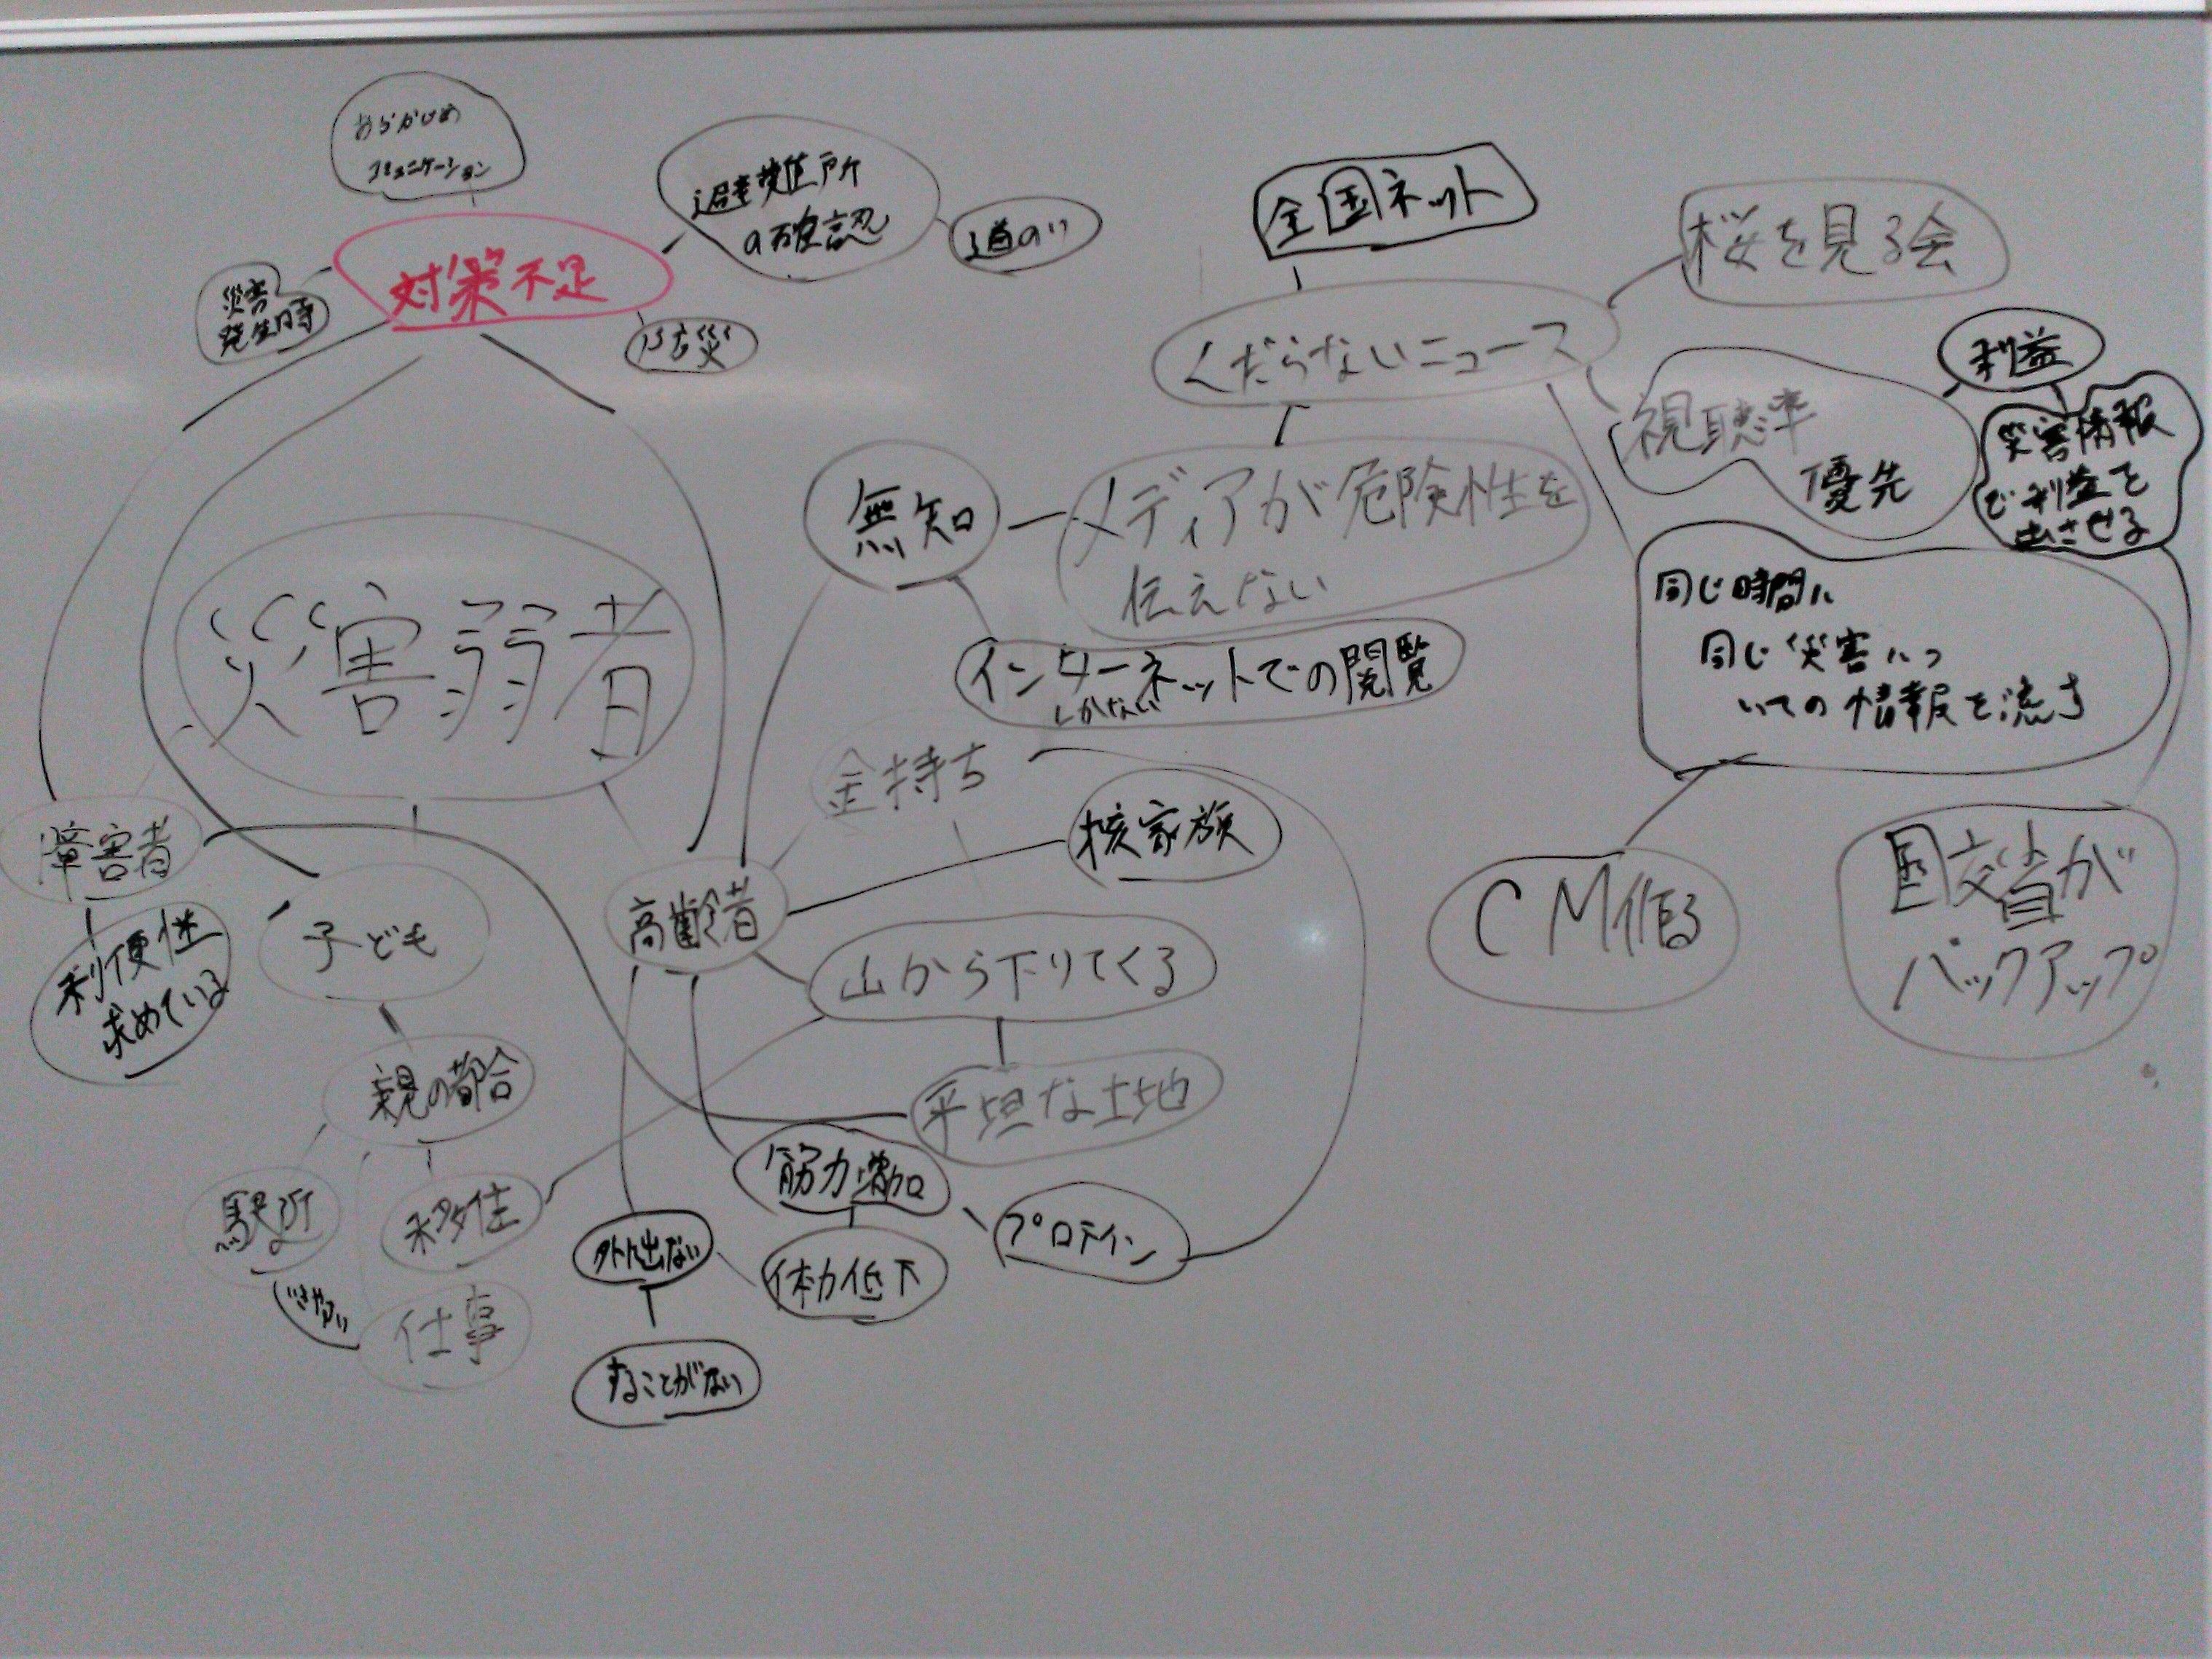 あらかじめ
コミュニケーション
対策不足
災害
発生時
避難所
の確認
防災
全国ネット
桜を見る会
くだらないニュース
視聴率
優先
利益
災害情報
で利益を
出させる
無知
メディアが危険性を
伝えない
インターネットでの閲覧
しかない
同じ時間に
同じ災害につ
いての情報を流す
CM作る
国交省が
バックアップ
災害弱者
障害者
利便性
求めている
子ども
親の都合
駅近
移住
いきやすい
仕事
高齢者
金持ち
核家族
山から下りてくる
平坦な土地
筋力増加
プロテイン
体力低下
外に出ない
することがない